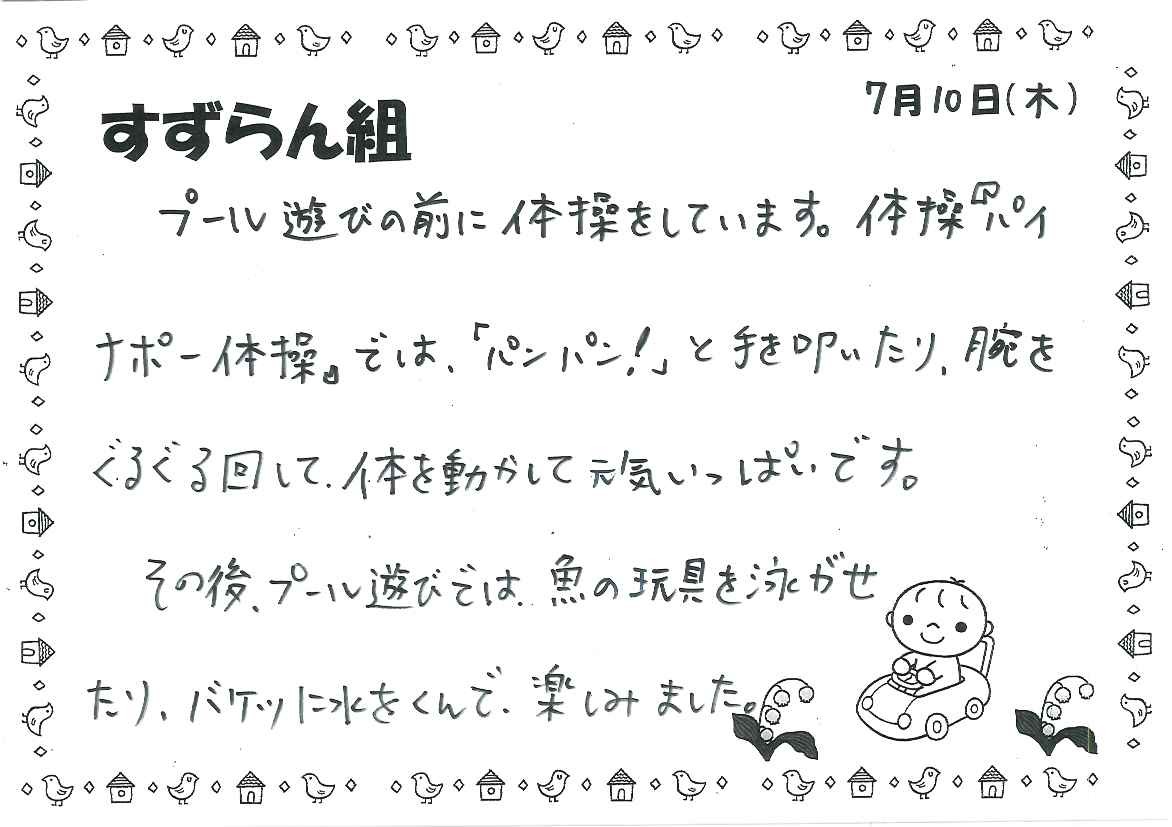 7月10日(木)
すずらん組
プール遊びの前に体操をしています。体操『パイ
ナポー体操』では、「パンパン!」と手を叩いたり、腕を
ぐるぐる回して、体を動かして元気いっぱいです。
その後、プール遊びでは、魚の玩具を泳がせ
たり、バケツに水をくんで、楽しみました。